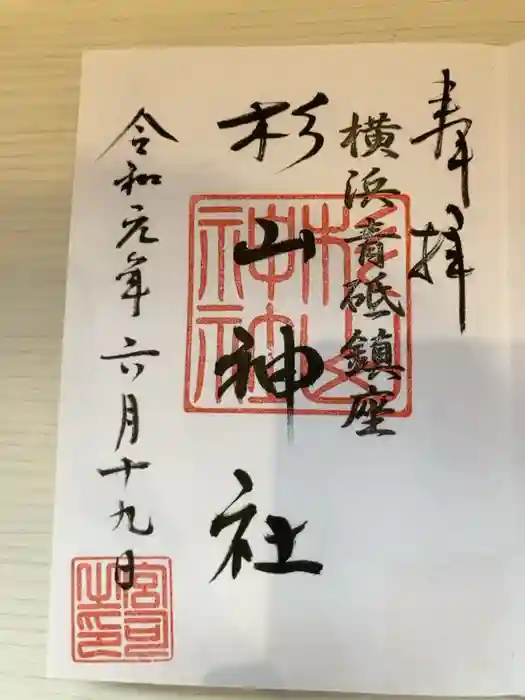 奉拝
横浜青砥鎮座
杉山神社
令和元年六月十九日
杉山神社
宮司之印